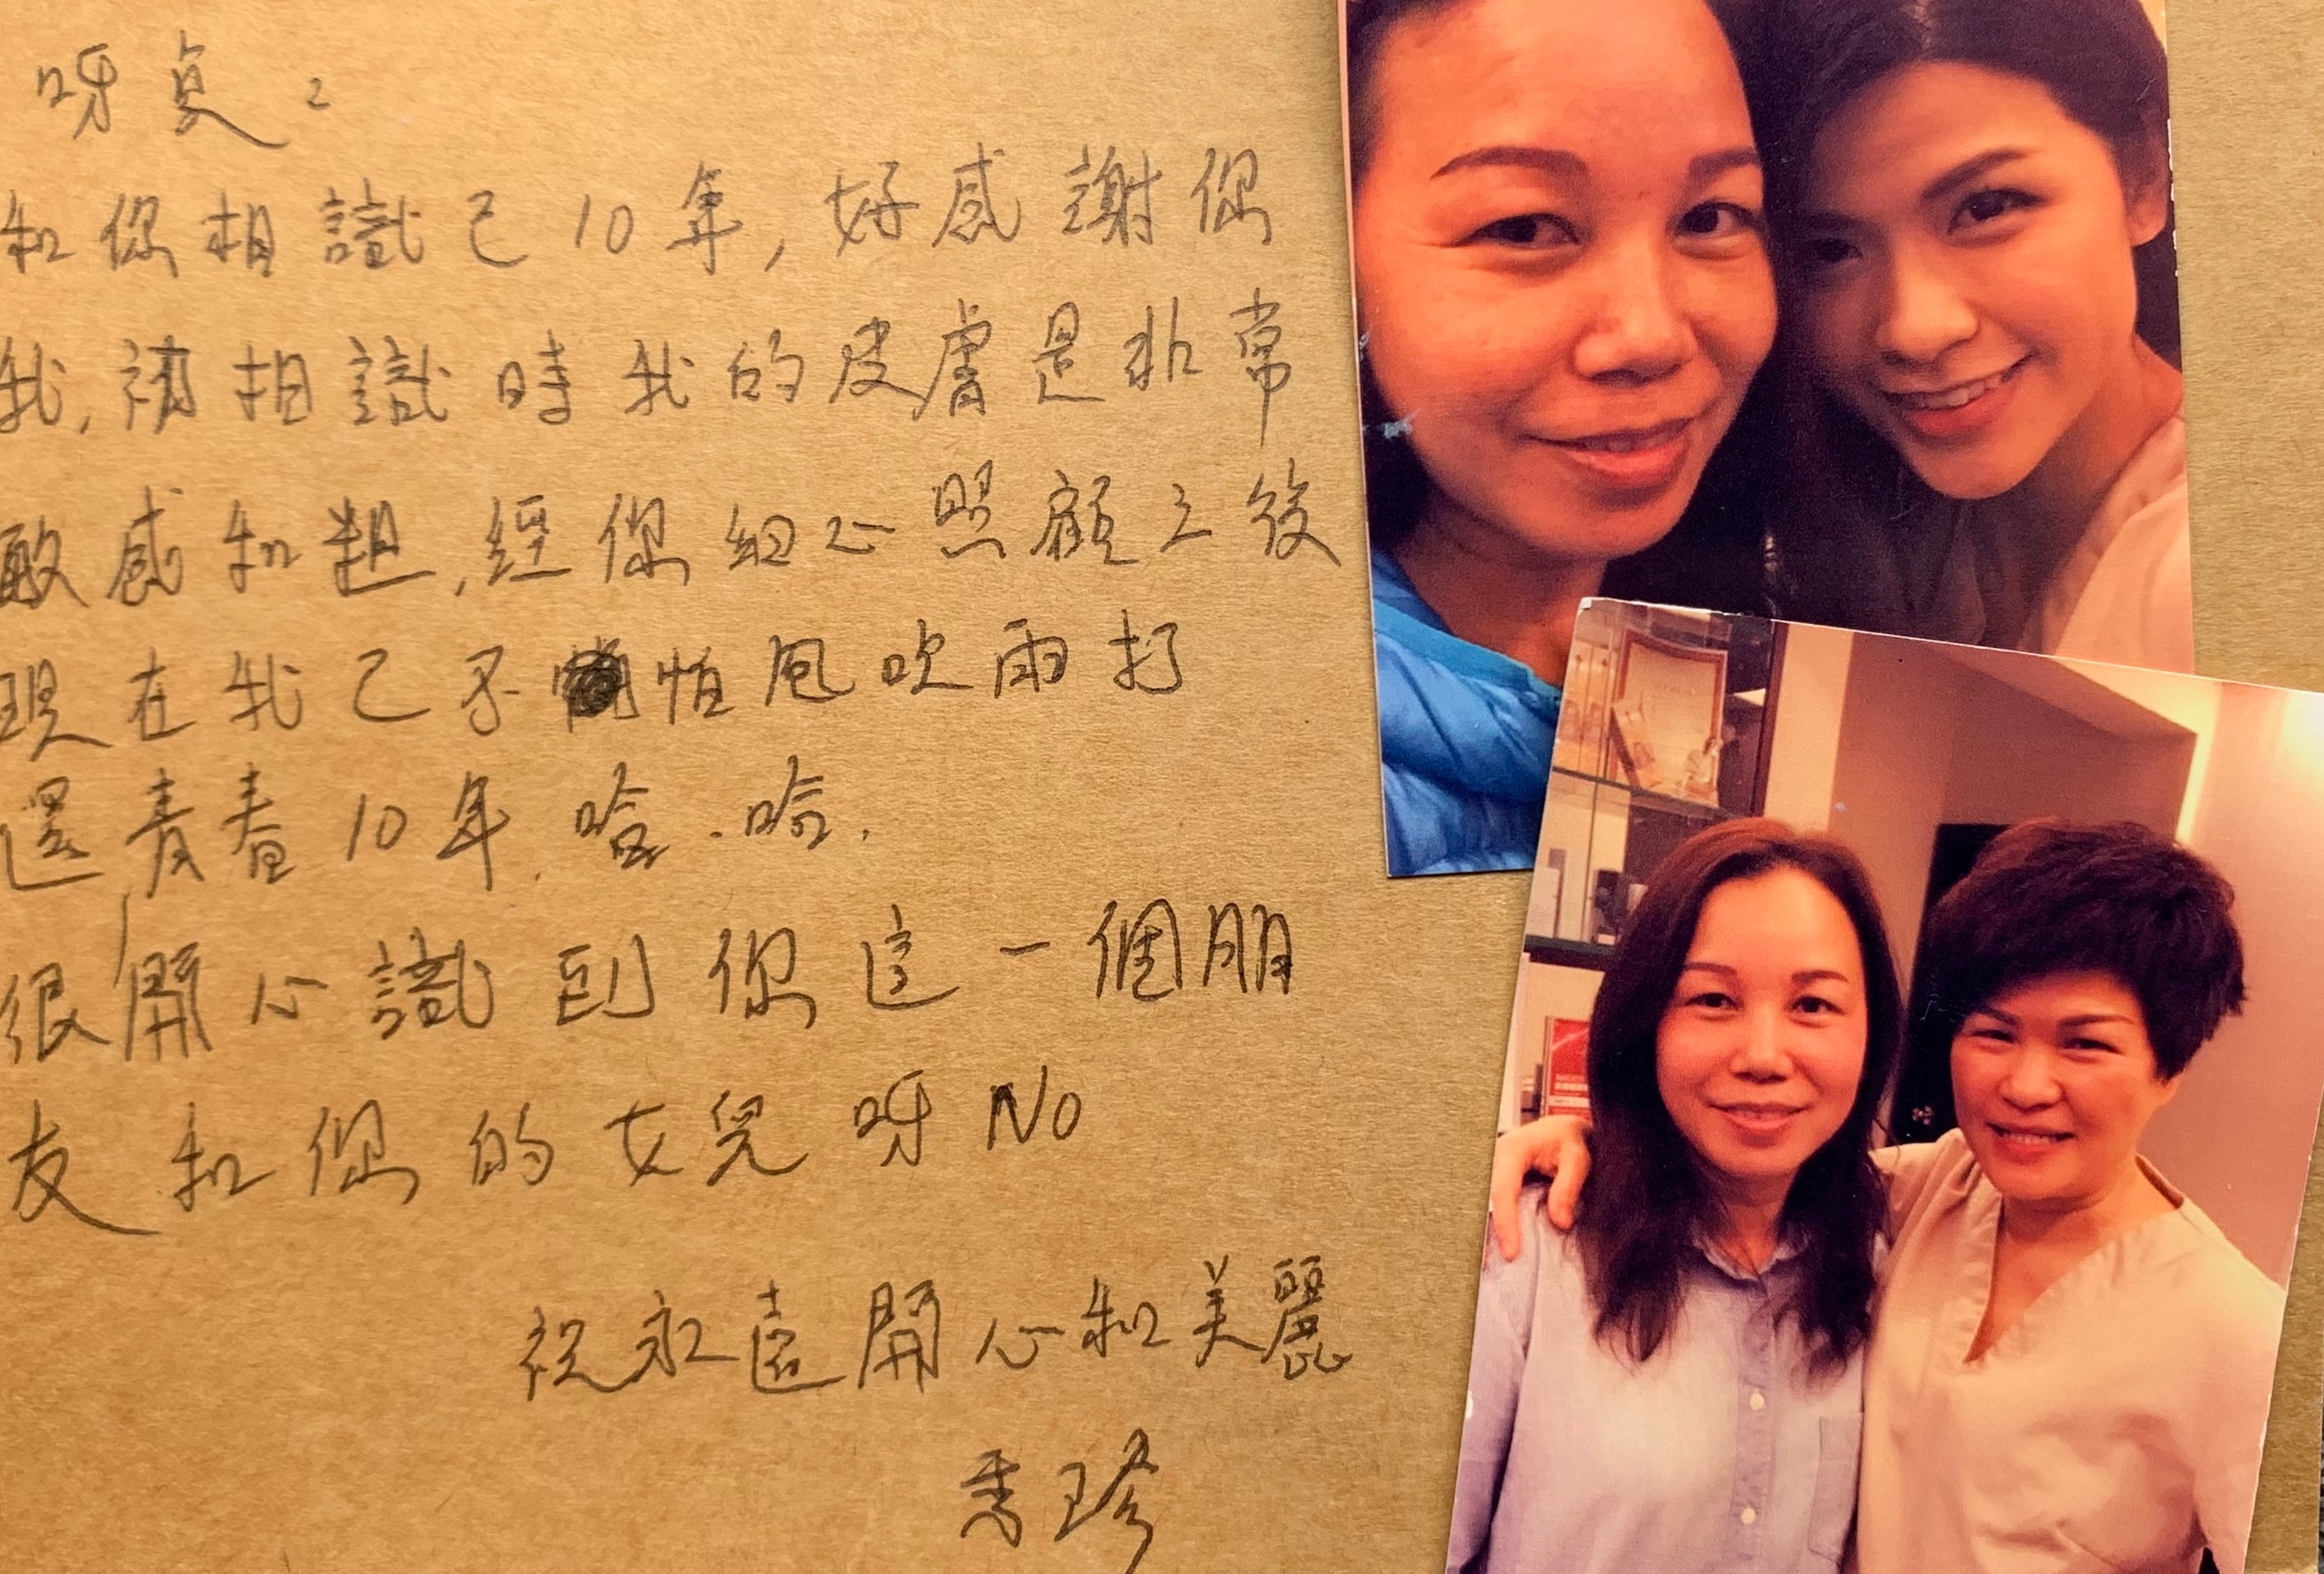 呀貞：
和你相識已10年，好感謝你
我，初相識時我的皮膚是非常
敏感和粗，經你細心照顧之後
現在我已不怕風吹雨打
還青春10年，哈．哈．
很開心識到你這一個朋
友和你的女兒呀No
祝永遠開心和美麗
秀珍